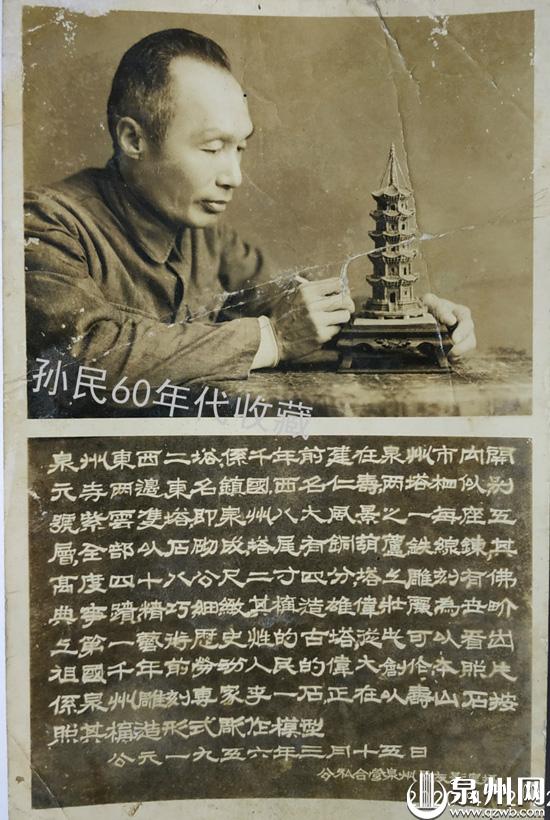 孙民60年代收藏
泉州東西二塔,係千年前建在泉州市內開
元寺两邊東名鎮國,西名仁壽,两塔相似,别
號紫雲雙塔,即泉州八大風景之一每座五
層,全部以石砌成塔尾有銅葫蘆鉄線鍊,其
高度四十八公尺二寸四分塔上雕刻有佛
典事蹟精巧細緻,其構造雄偉壯麗為世界
上第一藝術歷史性的古塔,從此可以看出
祖國千年前勞動人民的偉大創作本照片
係泉州雕刻專家李一石,正在以壽山石按
照其構造形式彫作模型
公元一九五六年三月十五日
公私合營泉州
泉州网
www.qzwb.com